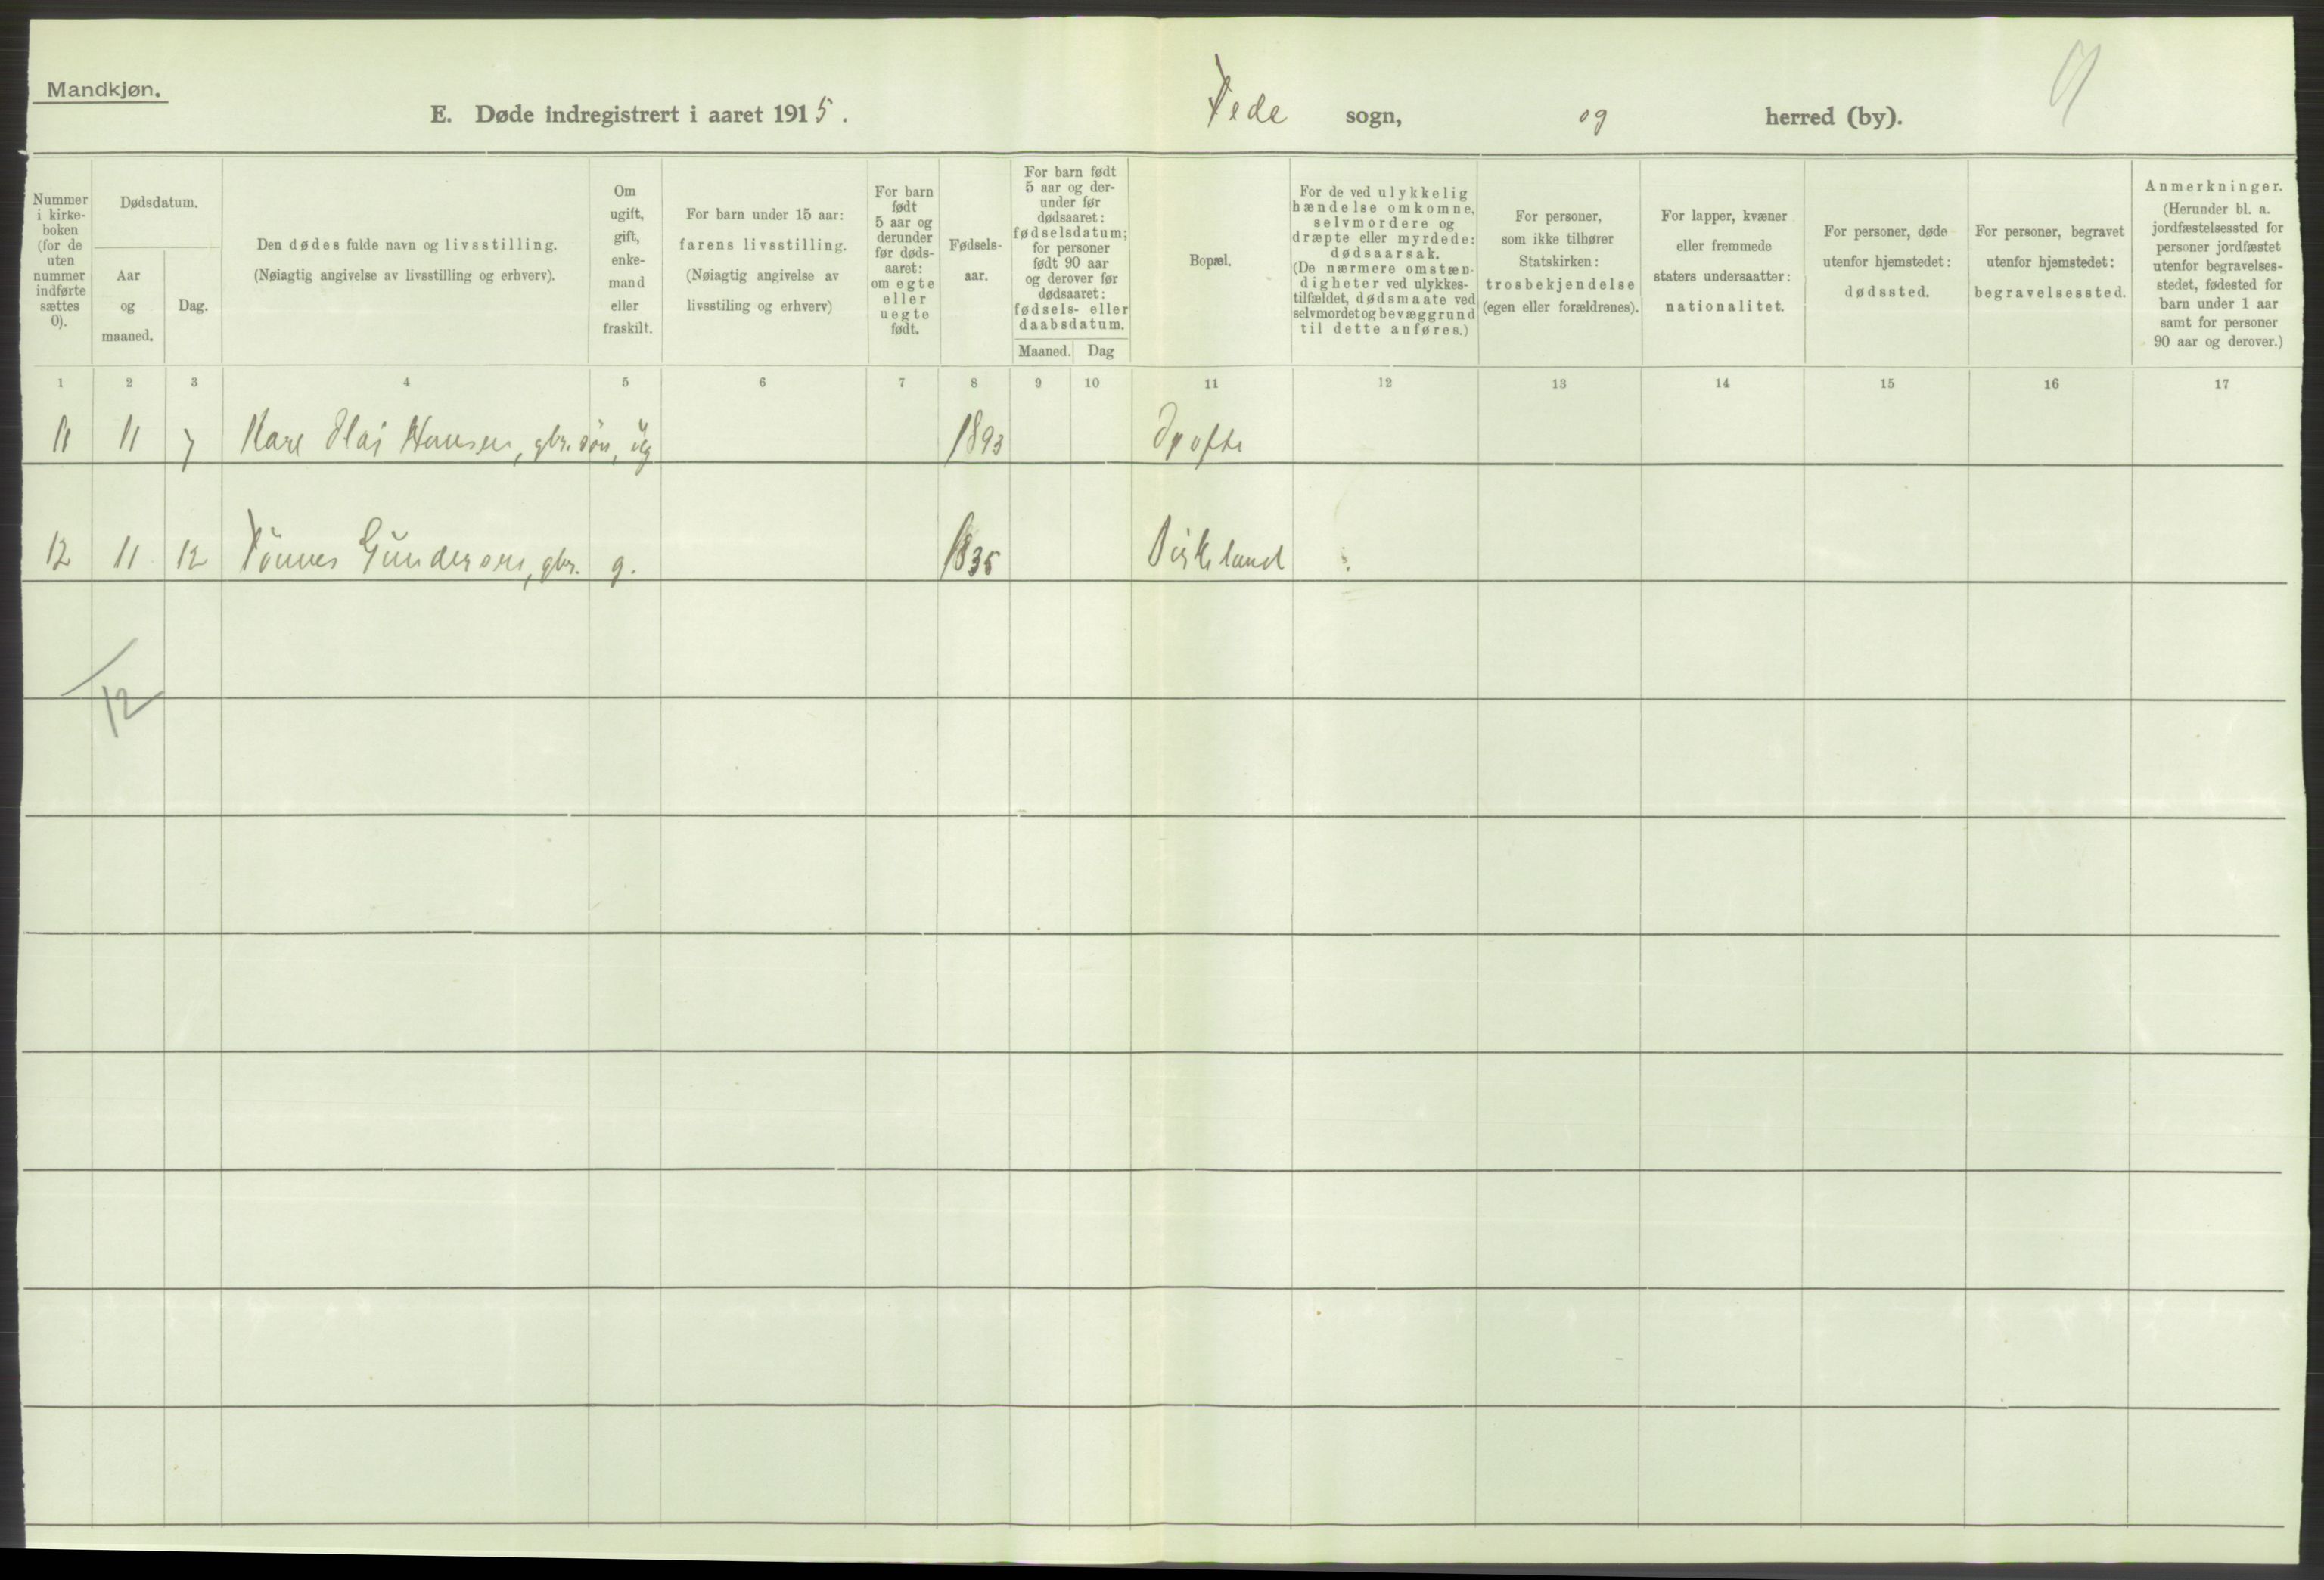 Mandkjøn.
E. Døde indregistrert i aaret 1915. Fede sogn, og herred (by).
9
Nummer i kirke-boken (for de uten nummer indførte sættes 0).
Dødsdatum.
Aar og maaned.
Dag.
Den dødes fulde navn og livsstilling.
(Nøiagtig angivelse av livsstilling og erhverv).
Om ugift, gift, enke-mand eller fraskilt.
For barn under 15 aar: farens livsstilling.
(Nøiagtig angivelse av livsstiling og erhverv)
For barn født 5 aar og derunder før døds-aaret: om egte eller uegte født.
Fødsels-aar.
For barn født 5 aar og der-under før dødsaaret: fødselsdatum; for personer født 90 aar og derover før dødsaaret: fødsels- eller daabsdatum.
Maaned. Dag
Bopæl.
For de ved ulykkelig hændelse omkomne, selvmordere og dræpte eller myrdede: dødsaarsak.
(De nærmere omstæn-digheter ved ulykkes-tilfældet, dødsmaate ved selvmordet og bevæggrund til dette anføres.)
For personer, som ikke tilhører Statskirken: trosbekjendelse (egen eller forældrenes).
For lapper, kvæner eller fremmede staters undersaatter: nationalitet.
For personer, døde utenfor hjemstedet: dødssted.
For personer, begravet utenfor hjemstedet: begravelsessted.
Anmerkninger.
(Herunder bl. a. jordfæstelsessted for personer jordfæstet utenfor begravelses-stedet, fødested for barn under 1 aar samt for personer 90 aar og derover.)
1 2 3 4 5 6 7 8 9 10 11 12 13 14 15 16 17
11 11 7 Karl Olai Hansen, gbr. søn, ug 1893
12 11 12 Tönnes Gundersen, gbr. g. 1835 Birkeland
12